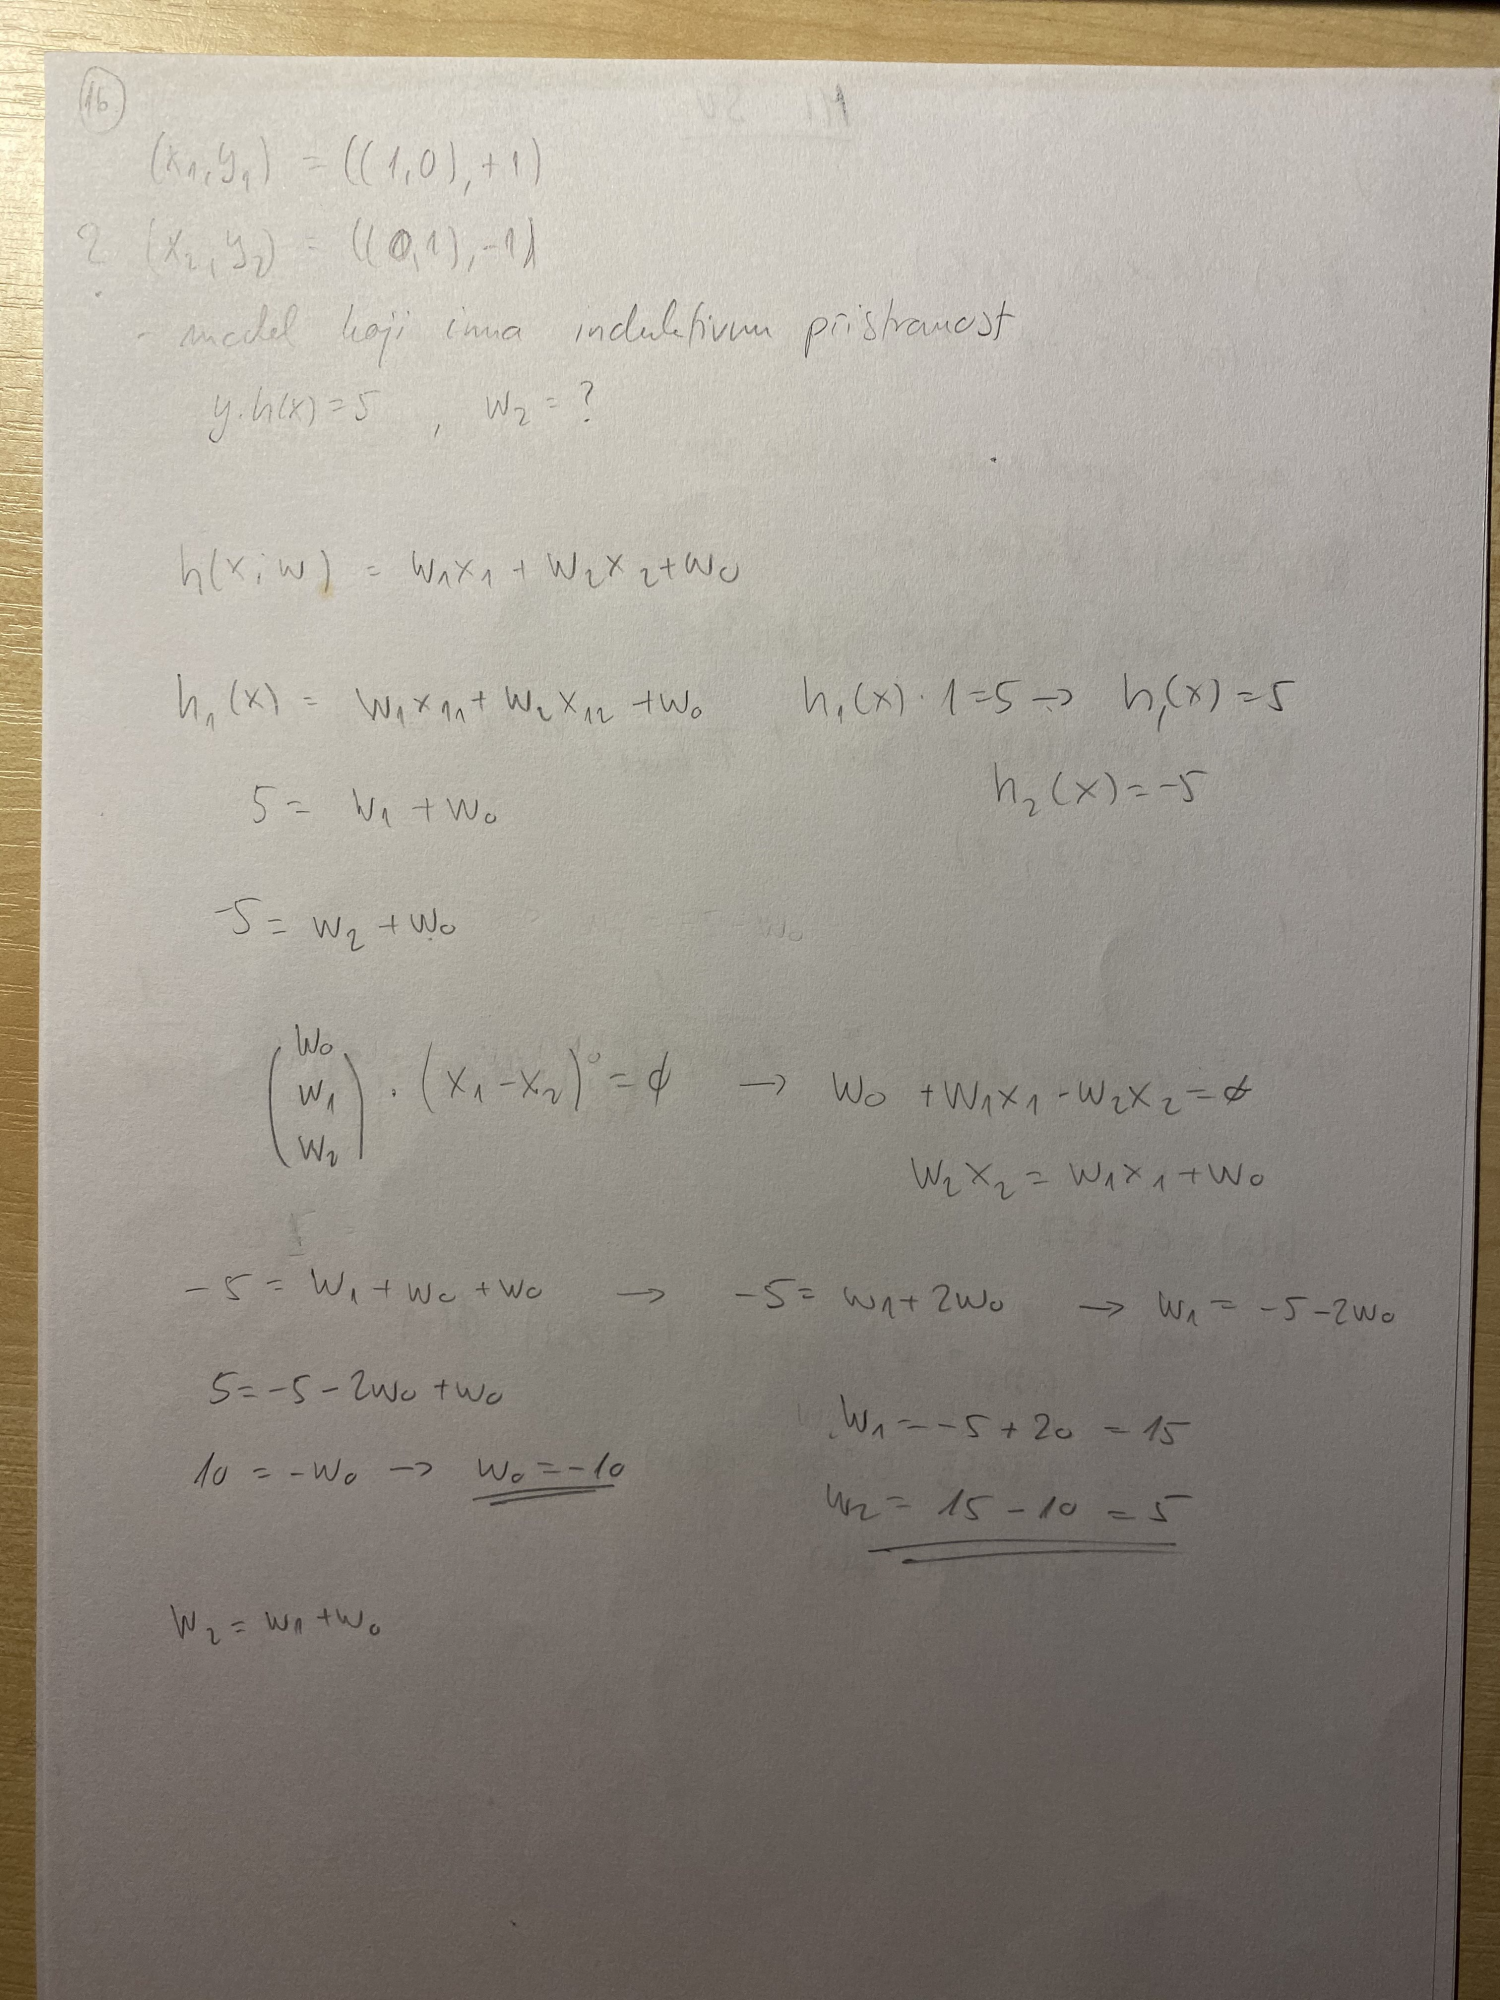 16
(x₁,y₁) = ((1,0),+1)
2 (x₂,y₂) = ((0,1),-1)
- model koji ima induktivnu pristranost
y·h(x)=5 , w₂ = ?
h(x;w) = w₁x₁ + w₂x₂+w₀
h₁(x) = w₁x₁₁+w₂x₁₂ +w₀ h₁(x)·1=5 → h₁(x)=5
5 = w₁ + w₀ h₂(x)=-5
-5 = w₂ + w₀
(w₀ w₁ w₂) · (x₁-x₂) = ϕ → w₀ +w₁x₁ -w₂x₂=ϕ
w₂x₂ = w₁x₁+w₀
-5 = w₁ + w₀ + w₀ → -5= w₁+2w₀ → w₁ = -5-2w₀
5=-5-2w₀+w₀
w₁=-5+20 = 15
10 = -w₀ → w₀=-10
w₂ = 15-10 = 5
w₂ = w₁+w₀